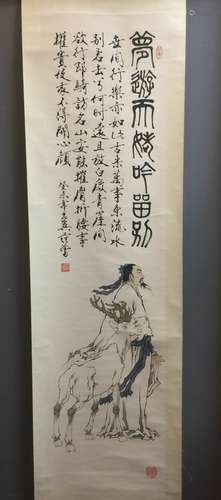 夢遊天姥吟留別
世間行樂亦如此古來萬事東流水
別君去兮何時還且放白鹿青崖間
行即騎訪名山安能摧眉折腰事
權貴使我不得開心顏
癸未年 范曾